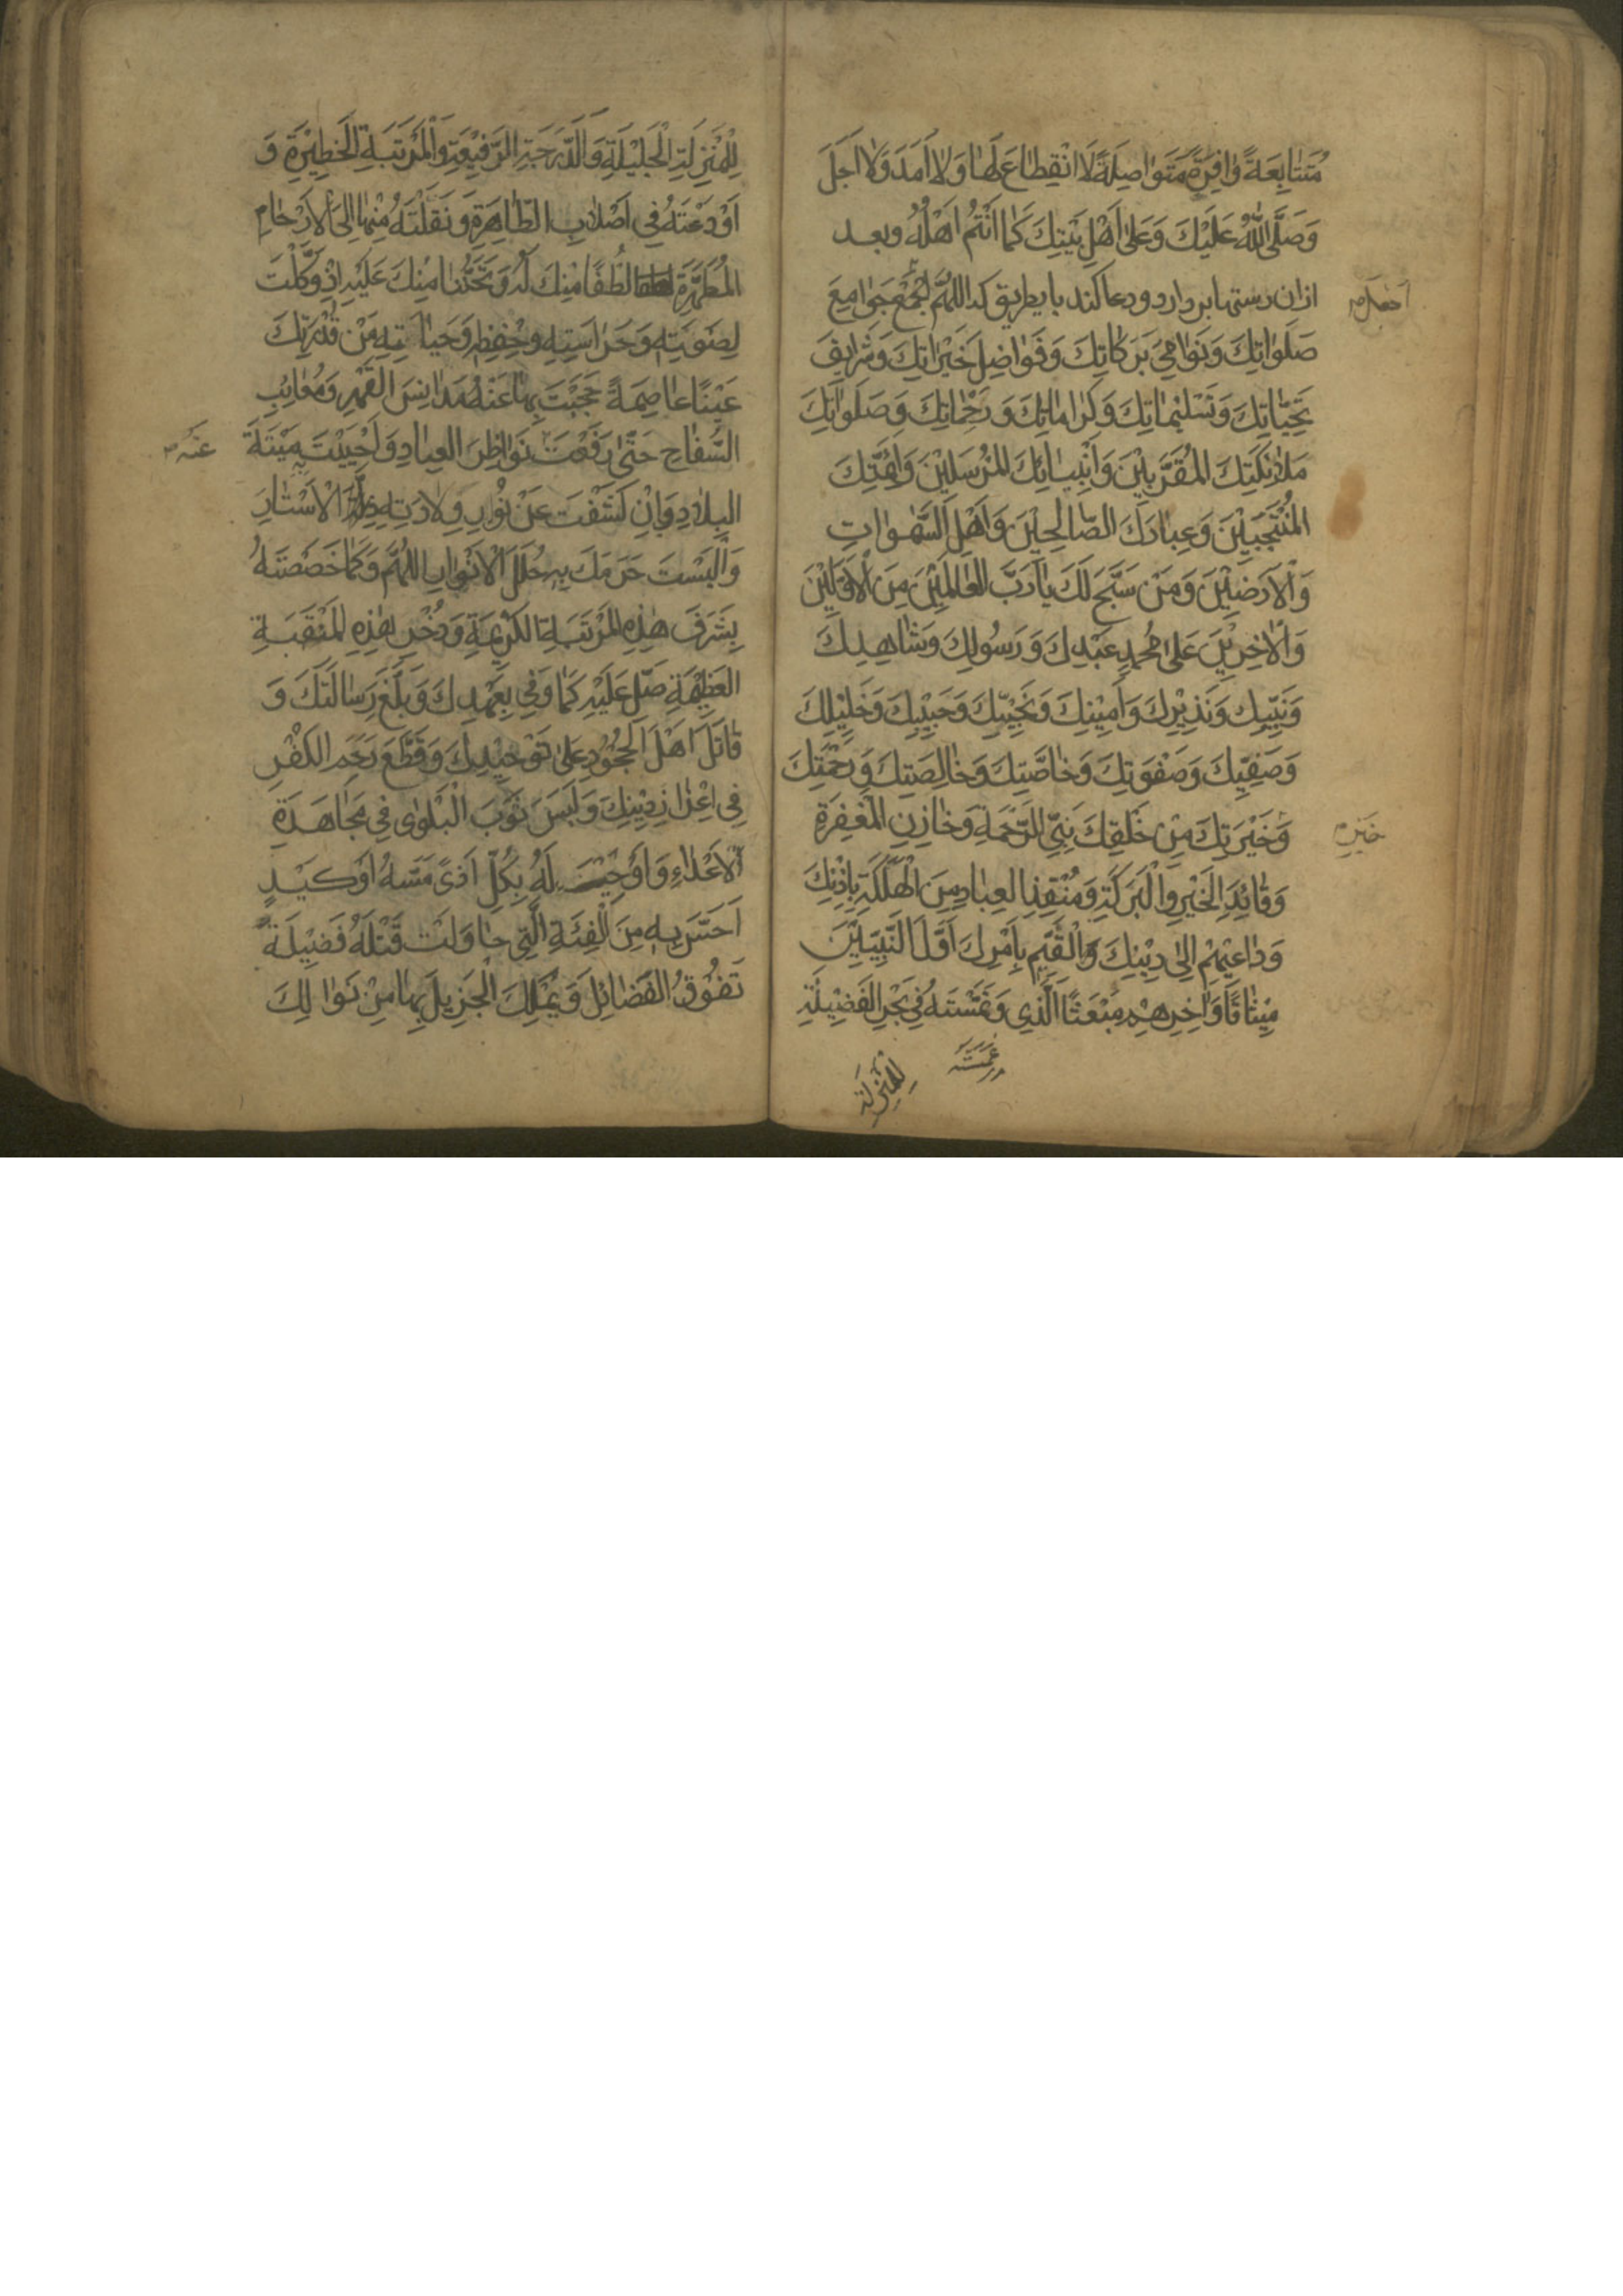 مُتَتَابِعَةً وَافِرَةً مُتَوَاصِلَةً لَا انْقِطَاعَ لَهَا وَلَا اَمَدَ وَلَا اَجَلَ
وَصَلَّى اللهُ عَلَيْكَ وَعَلَى اَهْلِ بَيْتِكَ كَمَا اَنْتُمْ اَهْلُهُ وبعد
ازان دستها بردارد و دعا كند باين طريق كه اللهُمَّ اجْمَعْ جَوَامِعَ
اجعل
صَلَوَاتِكَ وَنَوَامِىَ بَرَكَاتِكَ وَفَوَاضِلَ خَيْرَاتِكَ وَشَرَايِفَ
تَحِيَّاتِكَ وَتَسْلِيْمَاتِكَ وَكَرَامَاتِكَ وَرَحَمَاتِكَ وَصَلَوَاتِكَ
مَلَائِكَتِكَ الْمُقَرَّبِيْنَ وَاَنْبِيَائِكَ الْمُرْسَلِيْنَ وَاَئِمَّتِكَ
الْمُنْتَجَبِيْنَ وَعِبَادِكَ الصَّالِحِيْنَ وَاَهْلِ السَّمٰوَاتِ
وَالْاَرَضِيْنَ وَمَنْ سَبَّحَ لَكَ يَا رَبَّ الْعَالَمِيْنَ مِنَ الْاَوَّلِيْنَ
وَالْاٰخِرِيْنَ عَلَى مُحَمَّدٍ عَبْدِكَ وَرَسُولِكَ وَشَاهِدِكَ
وَنَبِيِّكَ وَنَذِيْرِكَ وَاَمِيْنِكَ وَنَجِيِّكَ وَحَبِيْبِكَ وَخَلِيْلِكَ
وَصَفِيِّكَ وَصَفْوَتِكَ وَخَاصَّتِكَ وَخَالِصَتِكَ وَرَحْمَتِكَ
وَخَيْرَتِكَ مِنْ خَلْقِكَ نَبِيِّ الرَّحْمَةِ وَخَازِنِ الْمَغْفِرَةِ
وَقَائِدِ الْخَيْرِ وَالْبَرَكَةِ وَمُنْقِذِ الْعِبَادِ مِنَ الْهَلَكَةِ بِاِذْنِكَ
وَدَاعِيْهِمْ اِلَى دِيْنِكَ وَالْقَيِّمِ بِاَمْرِكَ اَوَّلِ النَّبِيِّيْنَ
مِيْثَاقًا وَاٰخِرِهِمْ مَبْعَثًا الَّذِي وَغَمَّسْتَهُ فِي بَحْرِ الْفَضِيْلَةِ
غمسته
لِلْمَنْزِلَةِ
لِلْمَنْزِلَةِ الْجَلِيْلَةِ وَالدَّرَجَةِ الرَّفِيْعَةِ وَالْمَرْتَبَةِ الْخَطِيْرَةِ وَ
اَوْدَعْتَهُ فِي اَصْلَابِ الطَّاهِرَةِ وَنَقَلْتَهُ مِنْهَا اِلَى الْاَرْحَامِ
الْمُطَهَّرَةِ لُطْفًا مِنْكَ لَهُ وَتَحَنُّنًا مِنْكَ عَلَيْهِ اِذْ وَكَّلْتَ
لِصَوْنِهِ وَحَرَاسَتِهِ وَحِفْظِهِ وَحَيَاطَتِهِ مِنْ قُدْرَتِكَ
عَيْنًا عَاصِمَةً حَجَبْتَ بِهَا عَنْهُ مَدَانِسَ الْعَهْرِ وَمَعَائِبَ
السِّفَاحِ حَتَّى رَفَعْتَ نَوَاظِرَ الْعِبَادِ وَاَحْيَيْتَ بِهِ مَيْتَةَ
عنه
الْبِلَادِ وَبِاَنْ كَشَفْتَ عَنْ نُوْرِ وِلَادَتِهِ ظُلَمَ الْاَسْتَارِ
وَاَلْبَسْتَ حَرَمَكَ بِهِ حُلَلَ الْاَنْوَارِ اللّٰهُمَّ وَكَمَا خَصَصْتَهُ
بِشَرَفِ هٰذِهِ الْمَرْتَبَةِ الْكَرِيْمَةِ وَذُخْرِ هٰذِهِ الْمَنْقَبَةِ
الْعَظِيْمَةِ صَلِّ عَلَيْهِ كَمَا وَفَى بِعَهْدِكَ وَبَلَّغَ رِسَالَتَكَ وَ
قَاتَلَ اَهْلَ الْجُحُوْدِ عَلَى تَوْحِيْدِكَ وَقَطَعَ رَحِمَ الْكُفْرِ
فِي اِعْزَازِ دِيْنِكَ وَلَبِسَ ثَوْبَ الْبَلْوٰى فِي مُجَاهَدَةِ
الْاَعْدَاءِ وَاَوْجَبْتَ لَهُ بِكُلِّ اَذًى مَسَّهُ اَوْ كَيْدٍ
اَحَسَّ بِهِ مِنَ الْفِئَةِ الَّتِي حَاوَلَتْ قَتْلَهُ فَضِيْلَةً
تَفُوْقُ الْفَضَائِلَ وَيَمْلِكُ الْجَزِيْلَ بِهَا مِنْ نَوَالِكَ